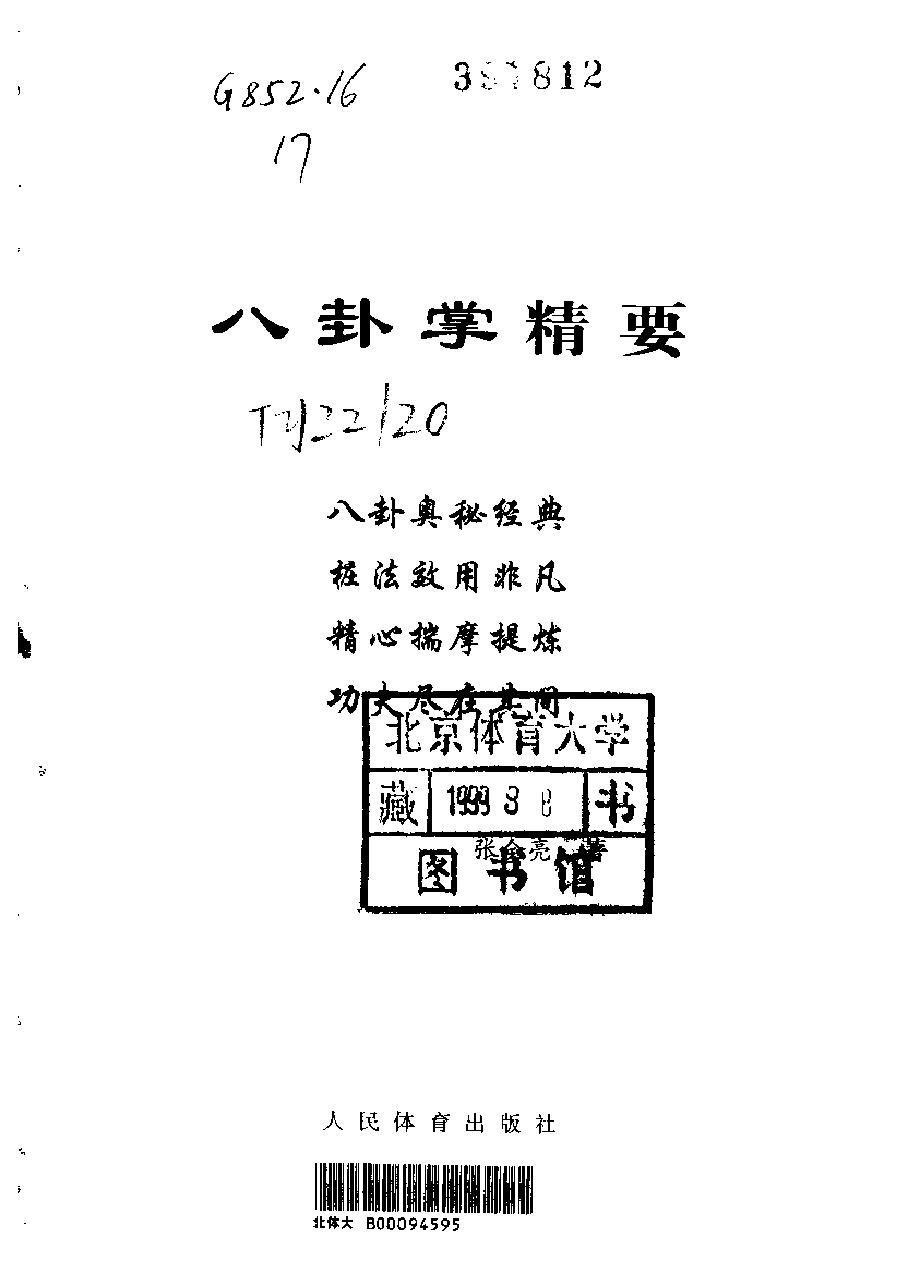 G852.16
17
八卦掌精要
八卦奥秘经典
桩法效用非凡
精心揣摩提炼
功夫尽在其间
北京体育大学
藏 1999 3 8 书
张全亮 著
图书馆
人民体育出版社
北体大 B00094595